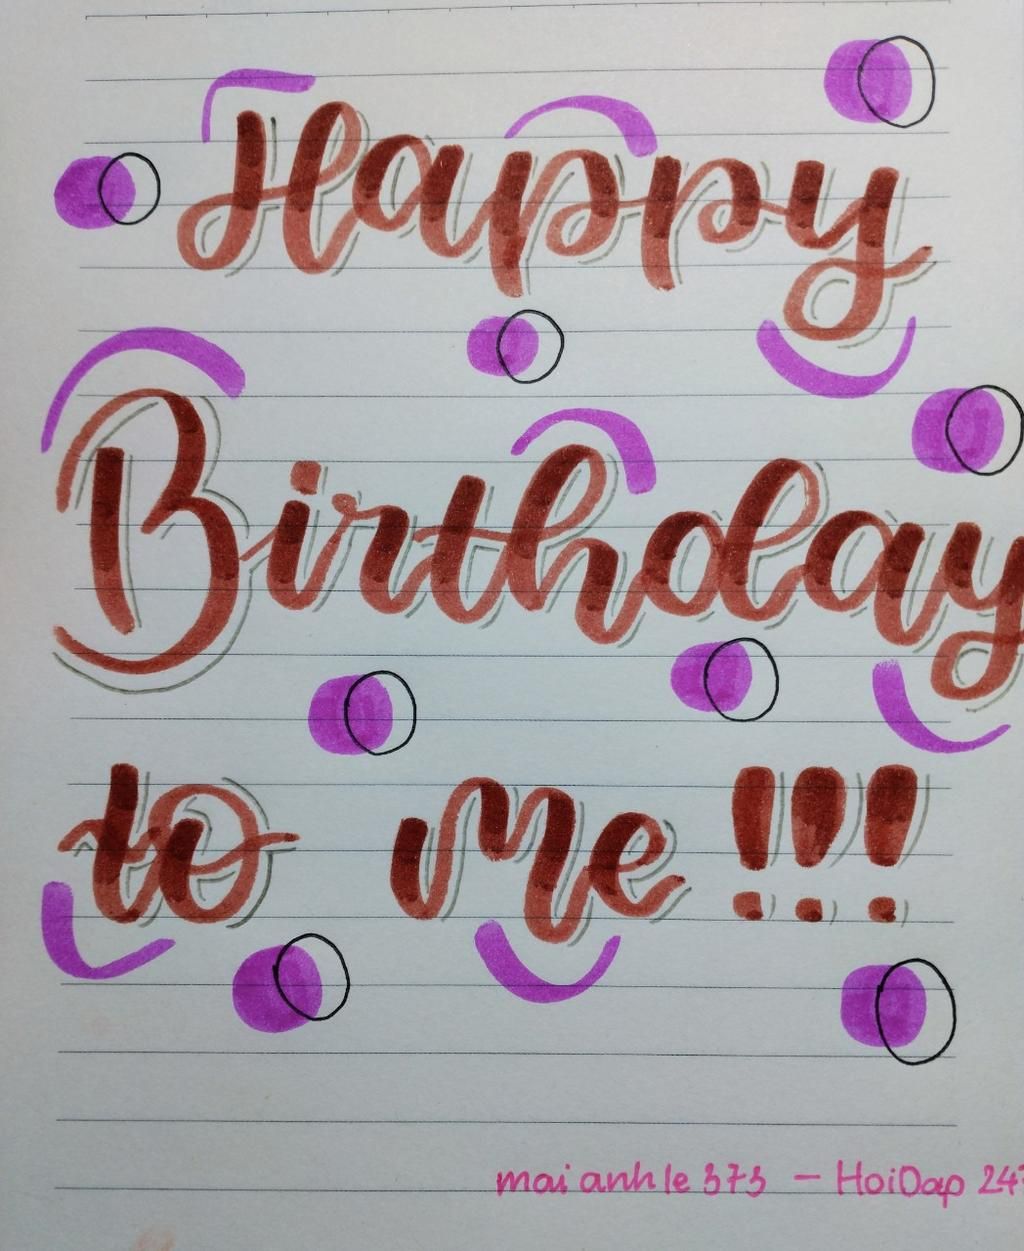 Happy
Birthday
to me !!!
maianhle373 – HoiDap 247